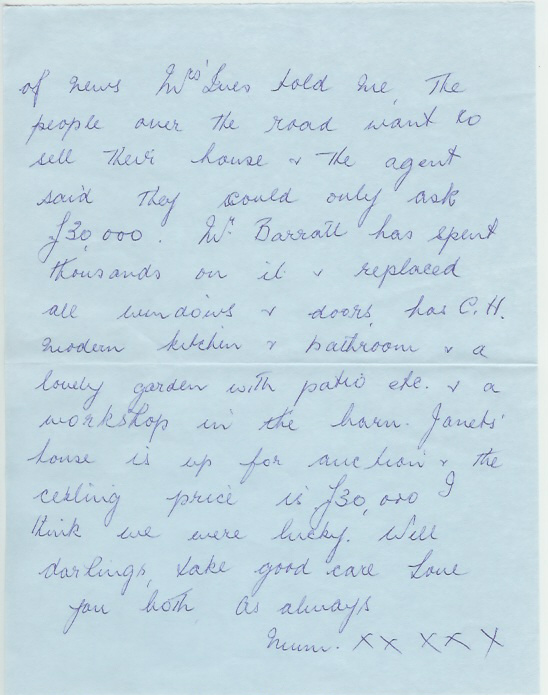 of news Mrs Ives told me, The
people over the road want to
sell their house & the agent
said they could only ask
£30,000. Mr. Barratt has spent
thousands on it & replaced
all windows & doors, has C.H.
modern kitchen & bathroom & a
lovely garden with patio etc. & a
workshop in the barn. Janets'
house is up for auction & the
ceiling price is £30,000 I
think we were lucky. Well
darlings, take good care Love
you both as always
Mum. XX XX X